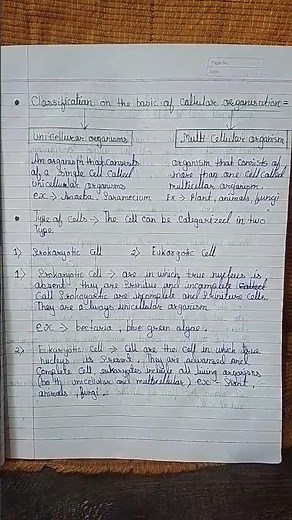 Page No.
Date
• Classification on the basic of cellular organisation =
unicellular organisms
Multi Cellular organism
An organism that consists
of a single cell called
unicellular organisms
ex :- Amoeba, Paramecium
organism that consists of
more than one cell called
multicellular organism
Ex :- Plant, animals, fungi
• Type of cells → The cell can be Categorized in two
type
1) Prokaryotic cell 2) Eukaryotic Cell
1) Prokaryotic Cell → are in which true nucleus is
absent they are Primitive and incomplete
Call Prokaryotic are incomplete and Primitive Cells.
They are always unicellular organism
ex → bacteria, blue green algae.
2) Eukaryotic Cell → Cell are the cell in which true
nucleus is Present. They are advanced and
Complete Cell eukaryotes include all living organisms
(both unicellular and multicellular) ex - Plant,
animals, fungi.